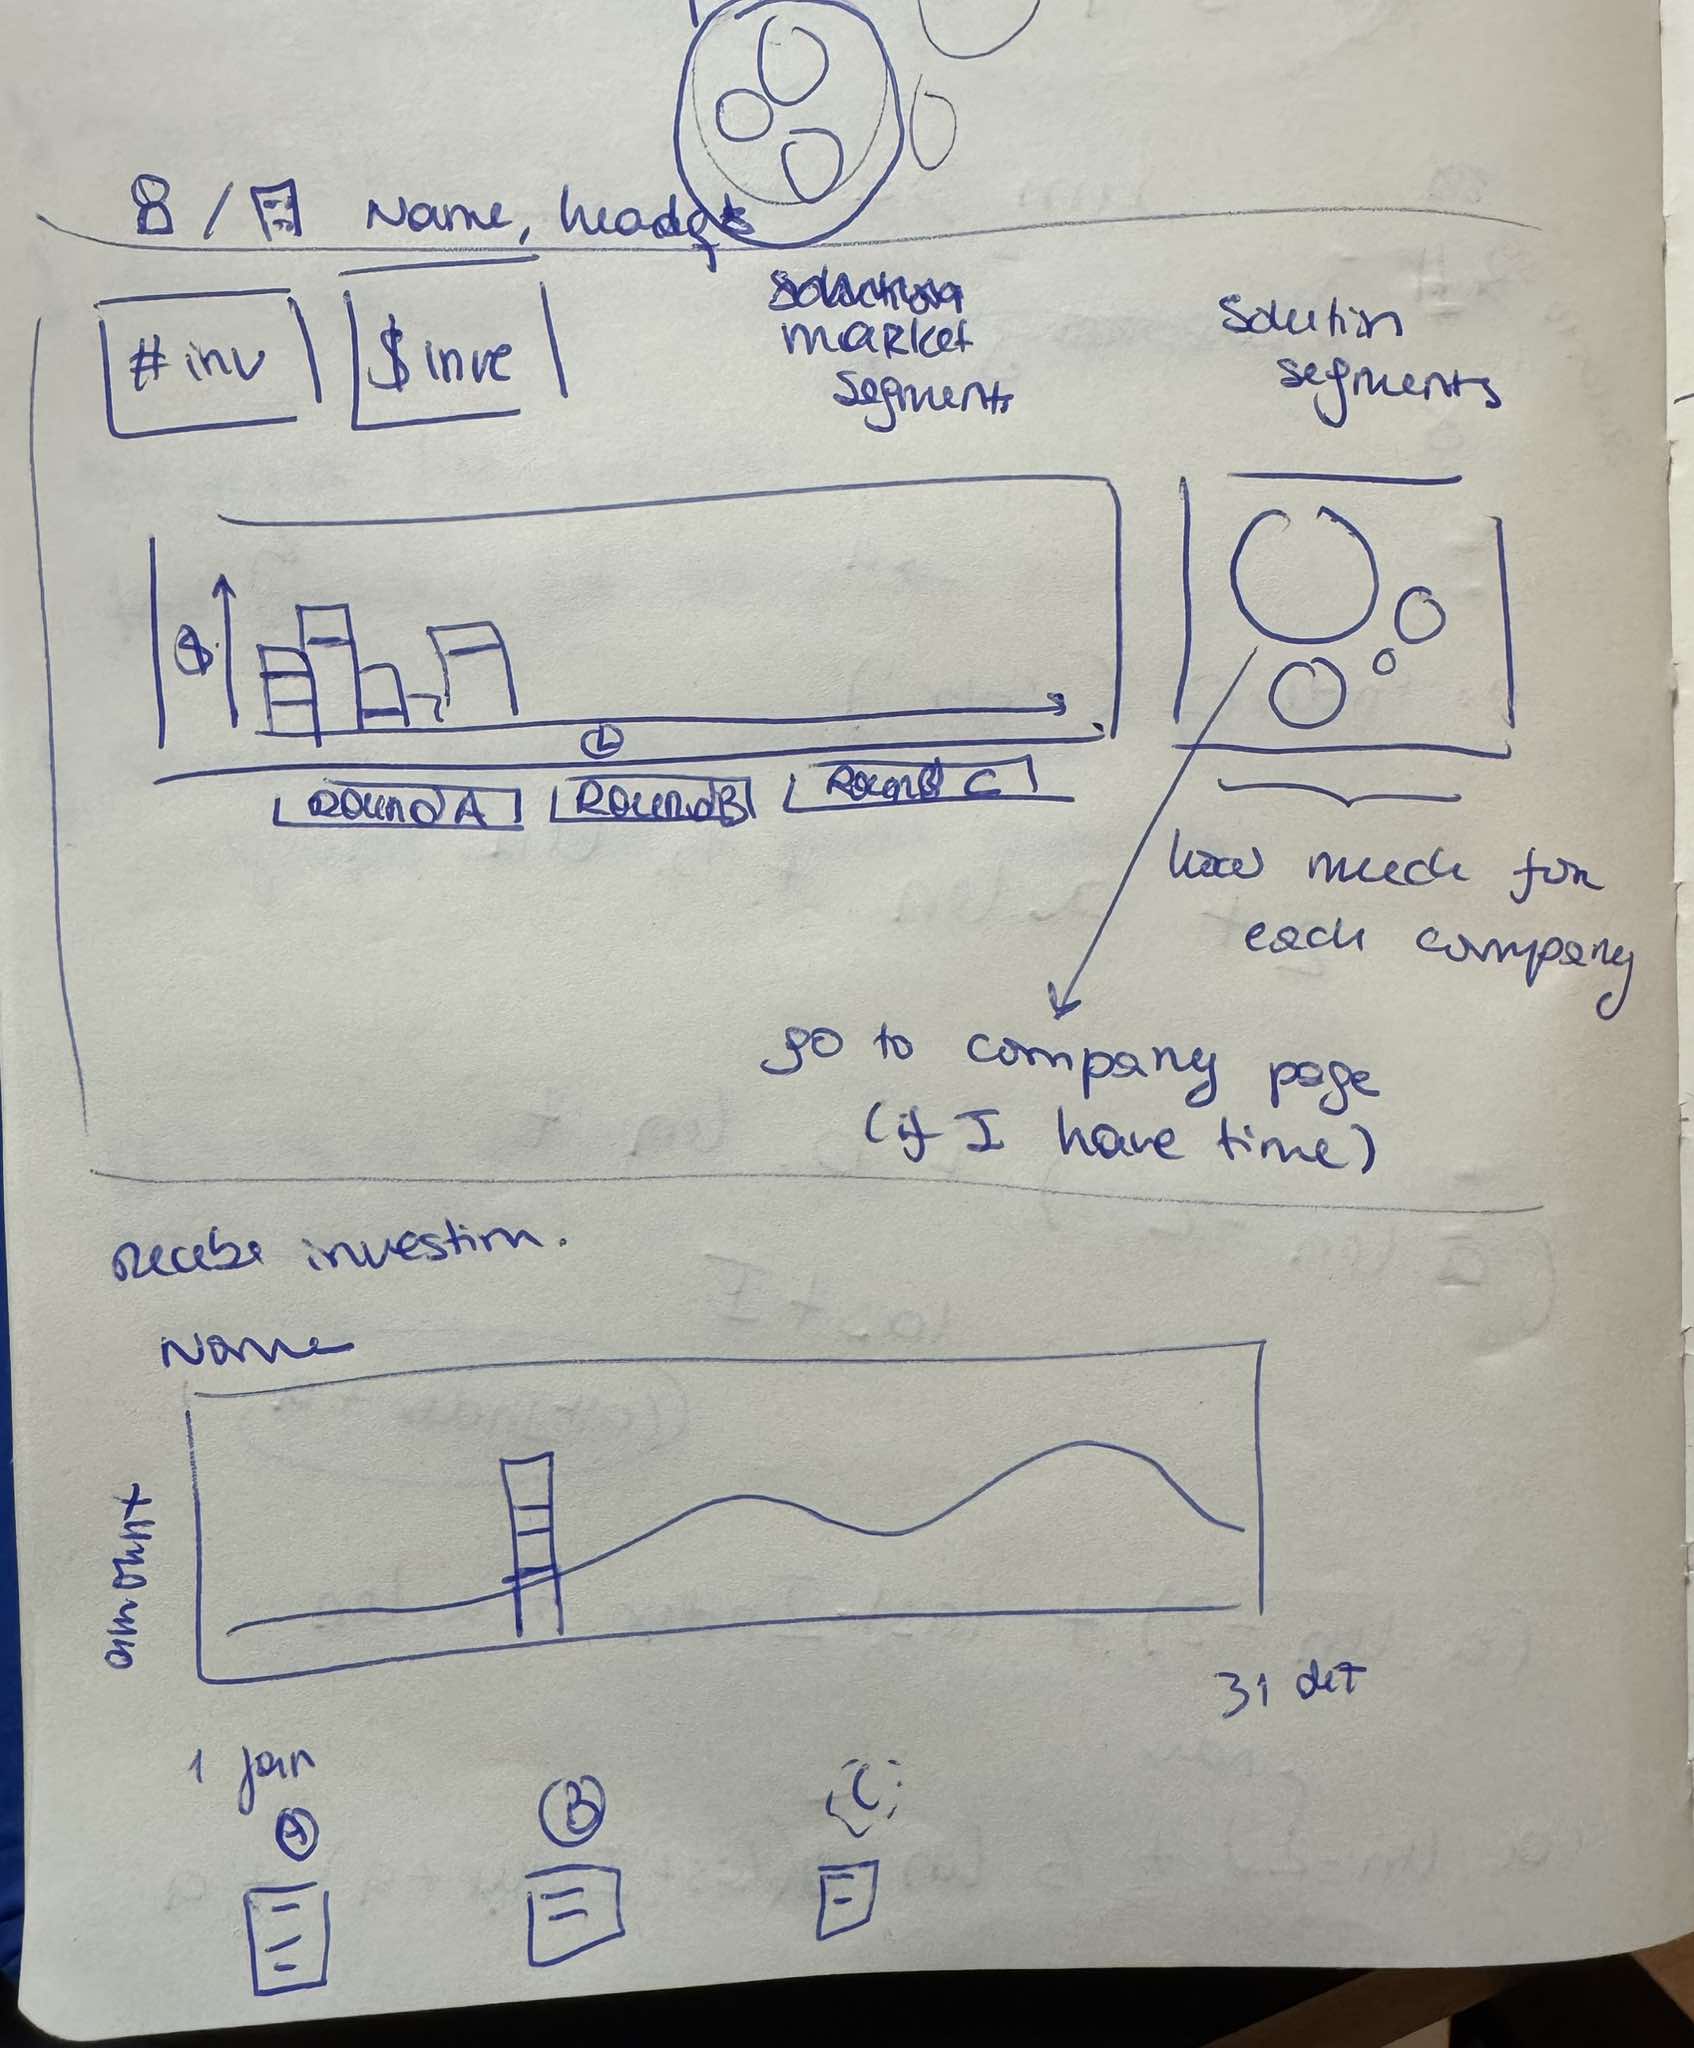 / Name,
# inv
$ inve
market
segments
Solution
segments
$
Round A
Round B
Round C
how much for
each company
go to company page
(if I have time)
investim.
Name
amount
1 jan
31
A
B
C